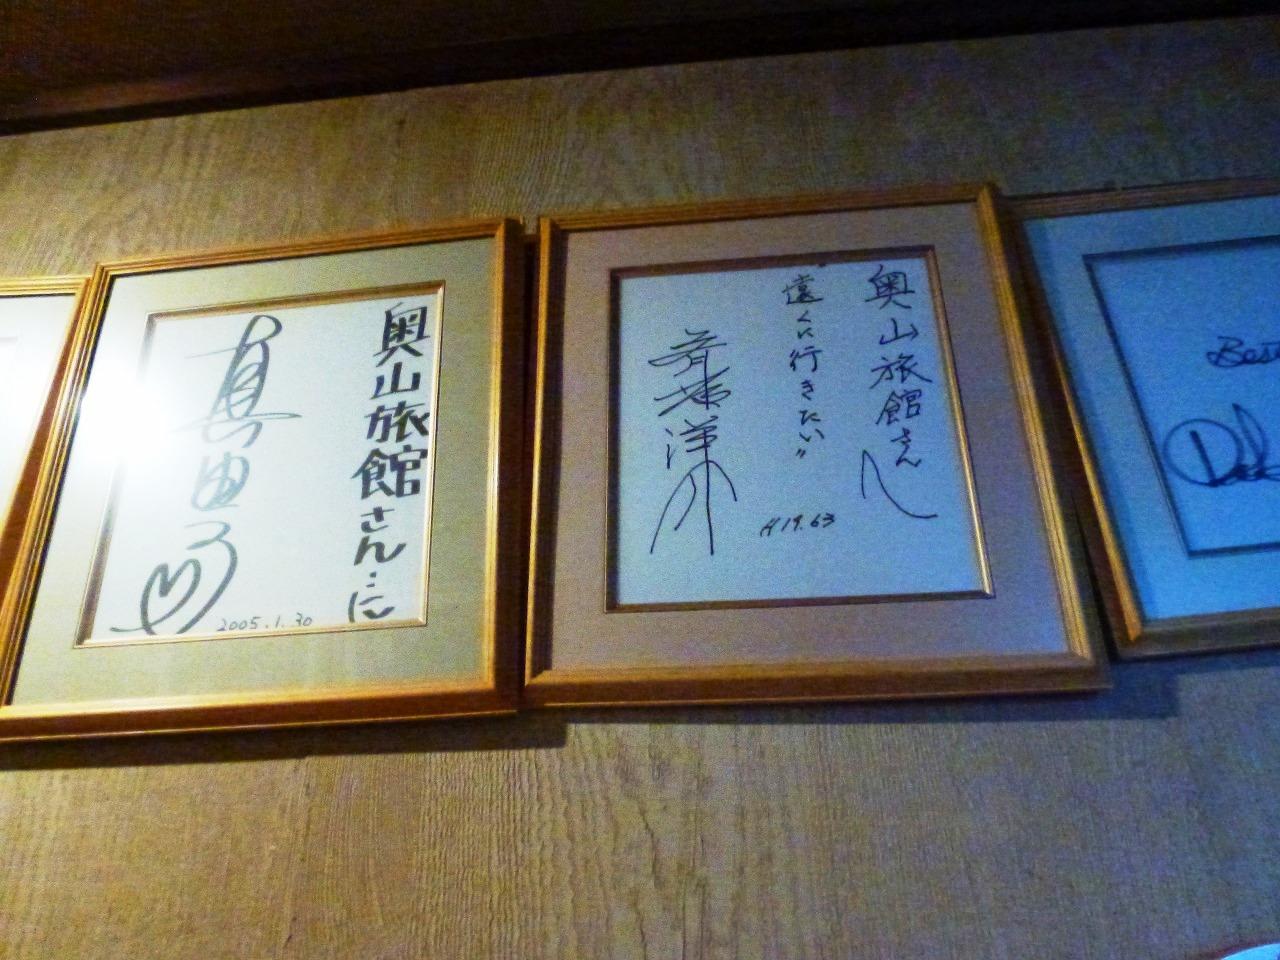 奥山旅館さん江
真由子
2005.1.30
奥山旅館さん江
"遠くに行きたい"
H19.6.3
Best